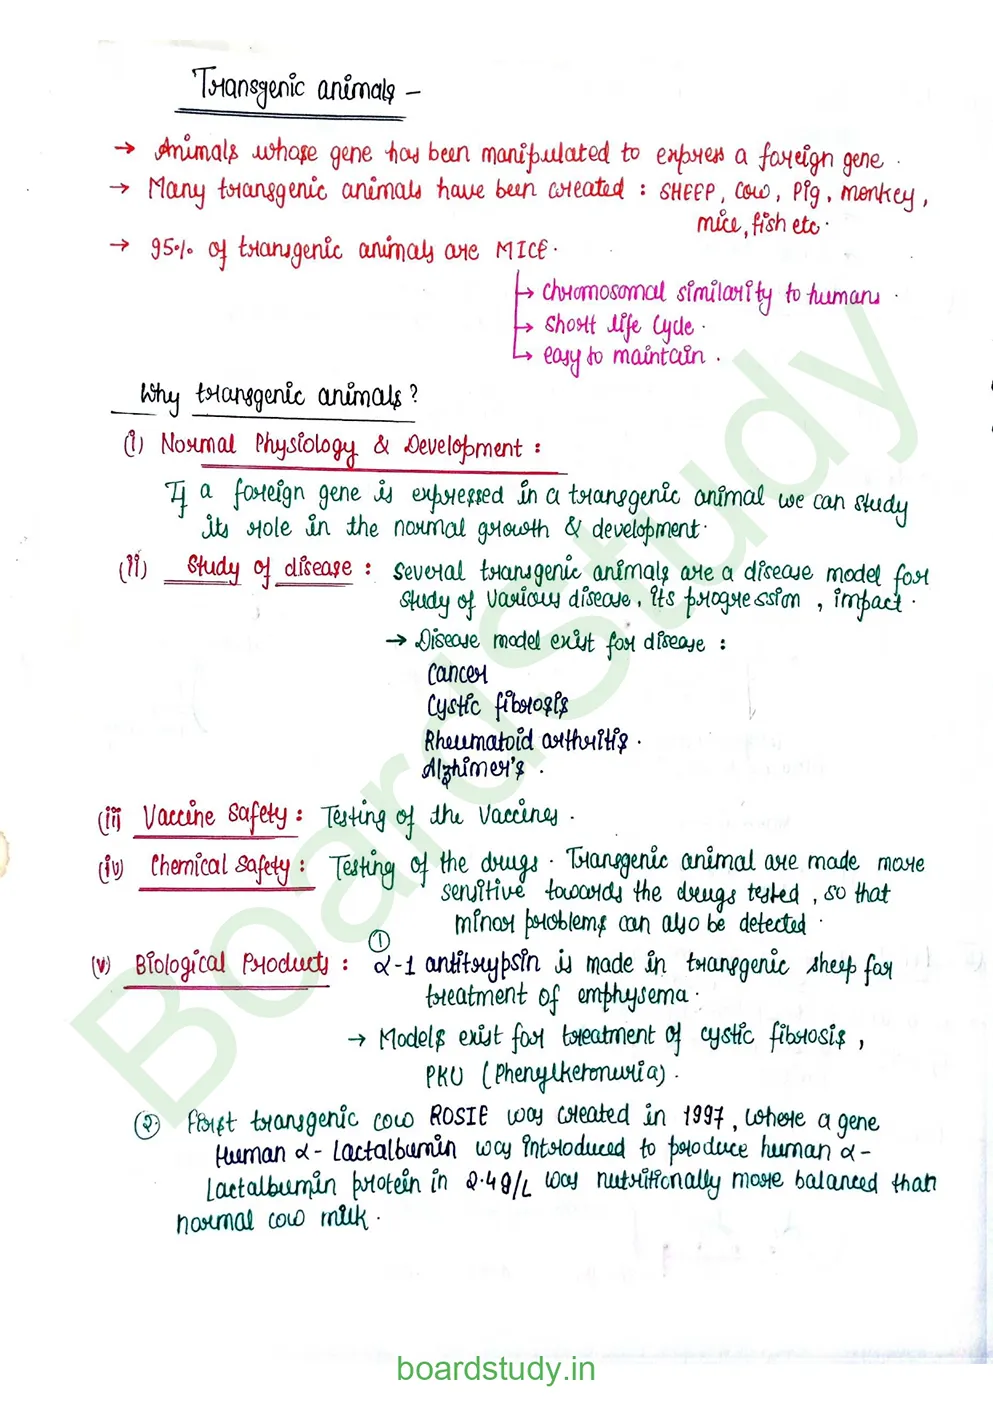 Transgenic animals -
→ Animals whose gene has been manipulated to express a foreign gene.
→ Many transgenic animals have been created : SHEEP, Cow, Pig, monkey,
mice, fish etc.
→ 95% of transgenic animals are MICE.
→ Chromosomal similarity to humans.
→ Short life cycle.
→ easy to maintain.
Why transgenic animals?
(i) Normal Physiology & Development :
If a foreign gene is expressed in a transgenic animal we can study
its role in the normal growth & development.
(ii) Study of disease : Several transgenic animals are a disease model for
study of various disease, its progression, impact.
→ Disease model exist for disease :
Cancer
Cystic fibrosis
Rheumatoid arthritis.
Alzhimer's.
(iii) Vaccine Safety : Testing of the Vaccines.
(iv) Chemical Safety : Testing of the drugs. Transgenic animal are made more
sensitive towards the drugs tested, so that
minor problems can also be detected.
(v) Biological Products : ① α-1 antitrypsin is made in transgenic sheep for
treatment of emphysema.
→ Models exist for treatment of cystic fibrosis,
PKU (Phenylketonuria).
② First transgenic cow ROSIE was created in 1997, where a gene
Human α- Lactalbumin was introduced to produce human α-
Lactalbumin protein in 2.4g/L was nutritionally more balanced than
normal cow milk.
BoardStudy
boardstudy.in